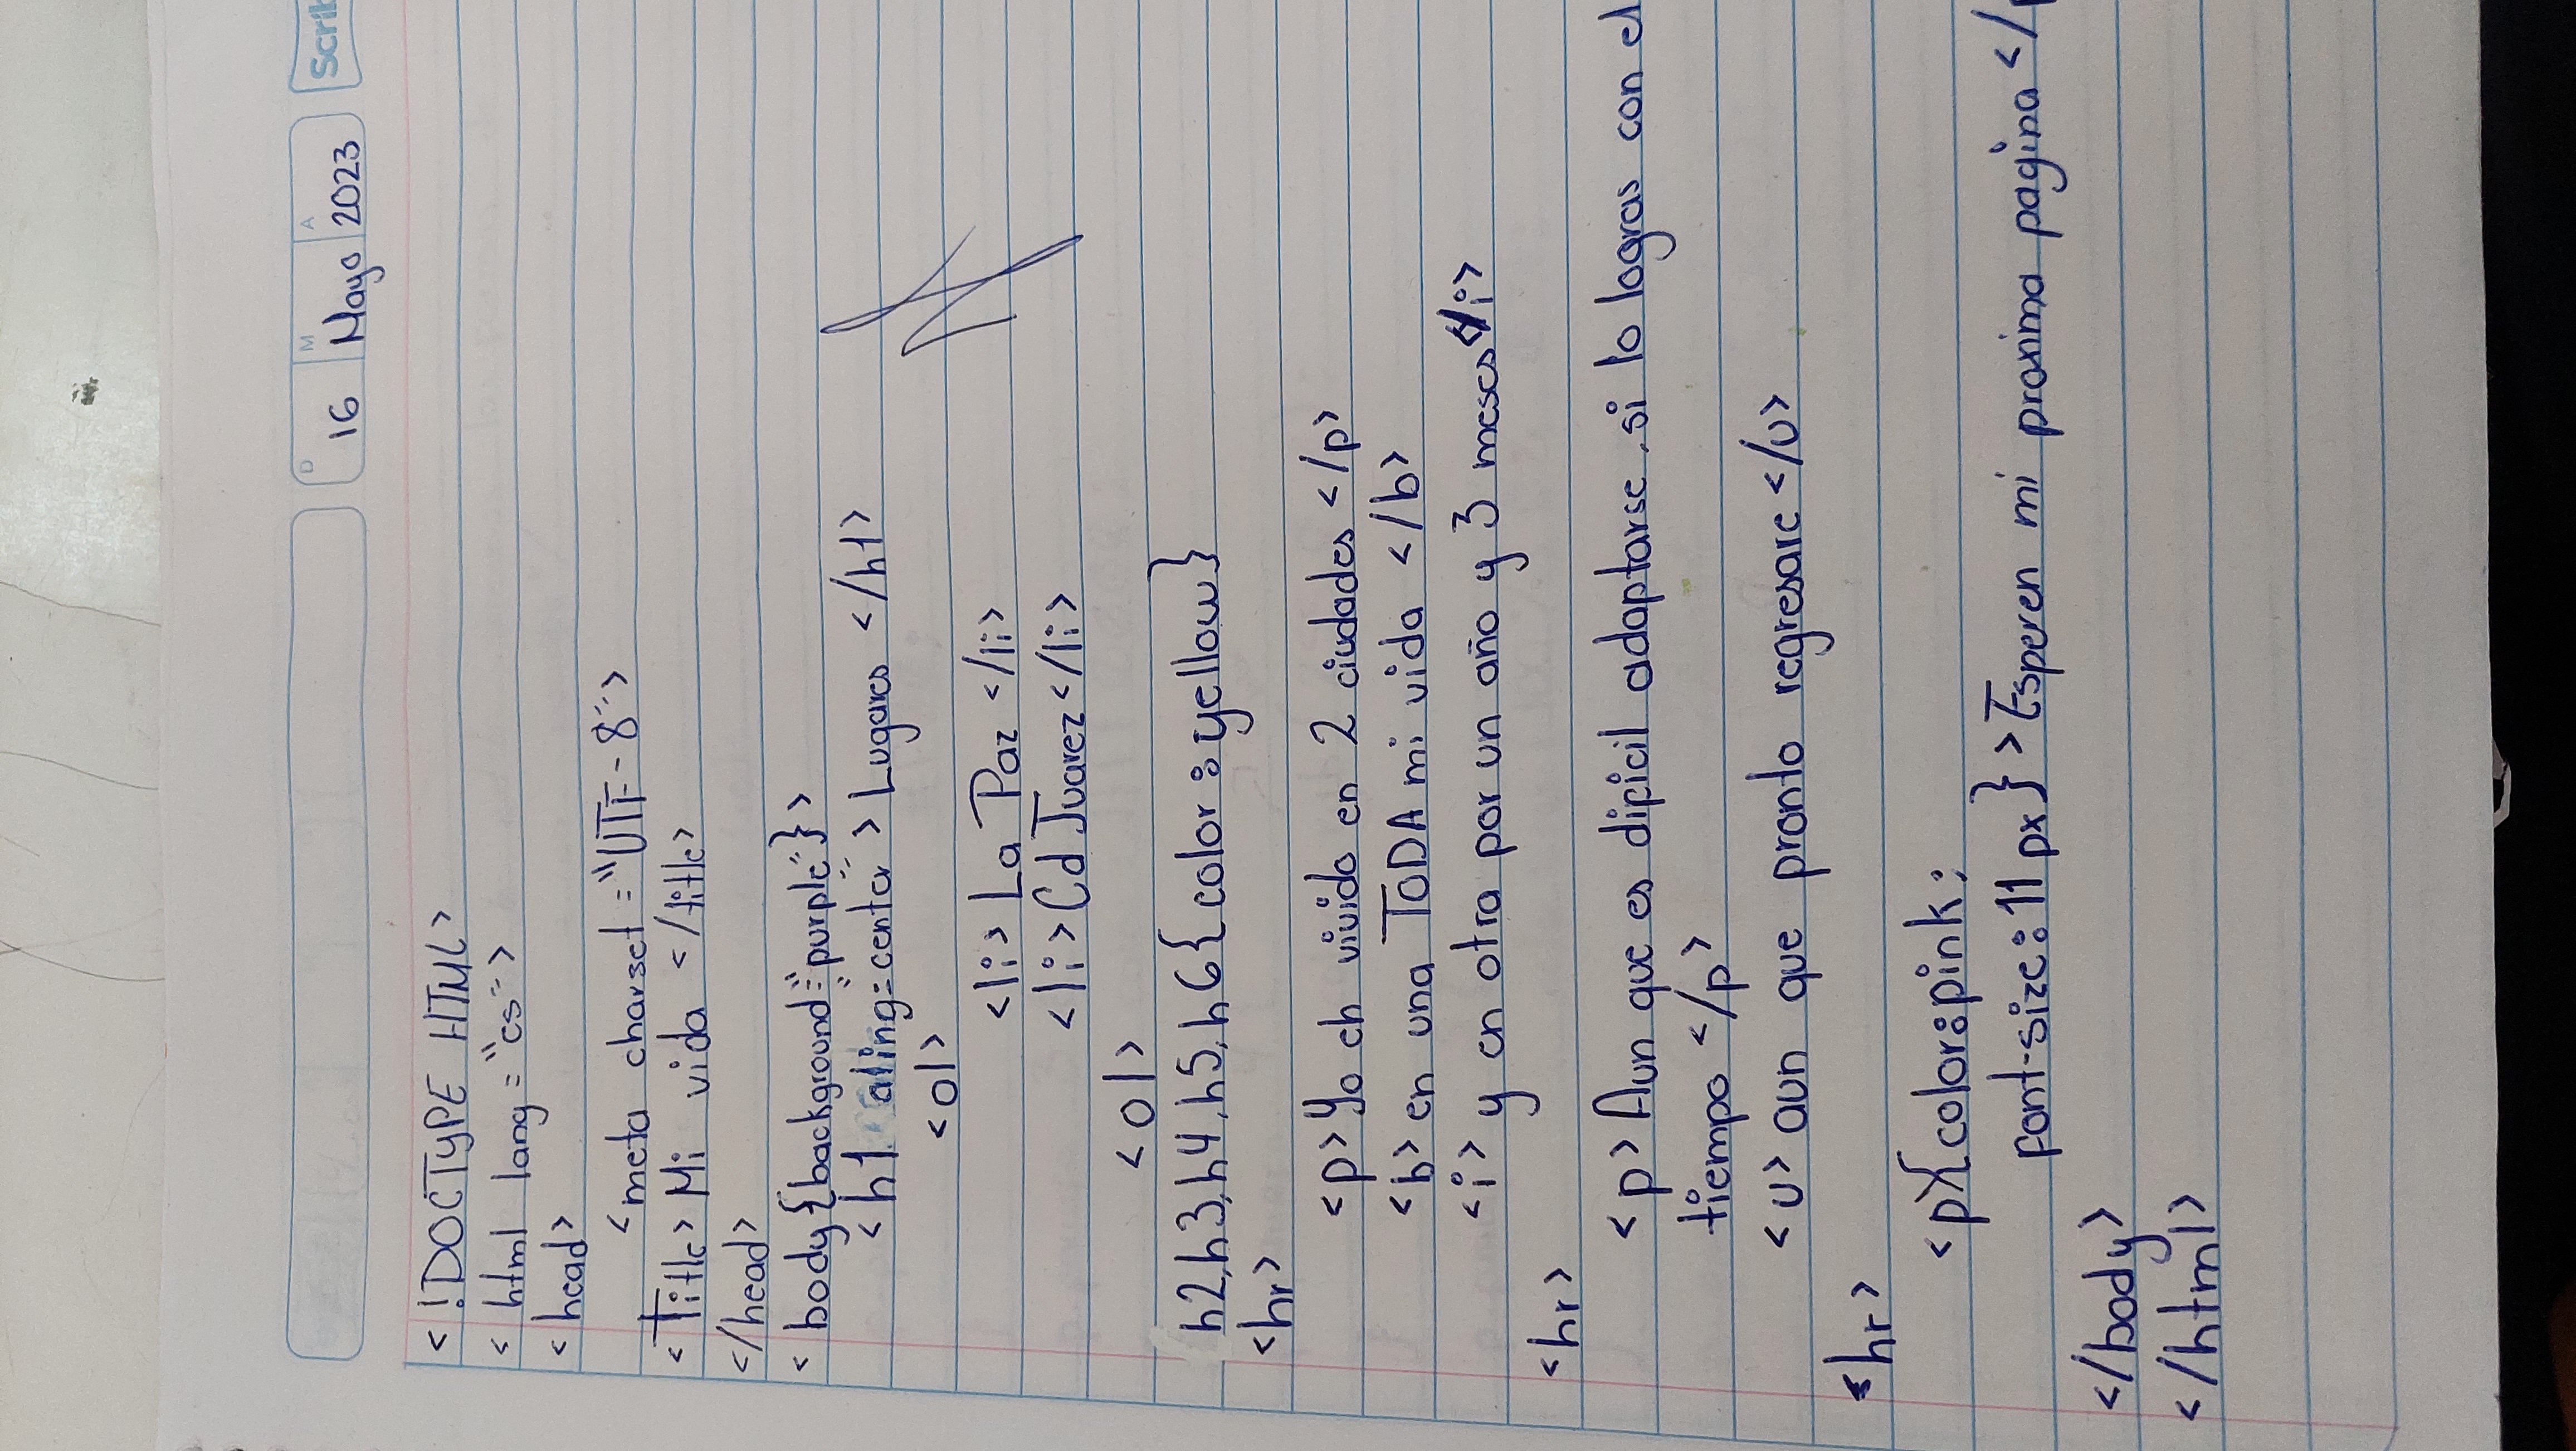 D M A
16 Mayo 2023
Scri
<!DOCTYPE HTML>
<html lang="es">
<head>
<meta charset="UTF-8">
<Title> Mi vida </title>
</head>
<body{background:"purple"}>
<h1 aling="center"> Lugares </h1>
<ol>
<li> La Paz </li>
<li> Cd Juarez </li>
<ol>
h2,h3,h4,h5,h6{color:yellow}
<hr>
<p> Yo eh vivido en 2 ciudades </p>
<b> en una TODA mi vida </b>
<i> y en otra por un año y 3 meses </i>
<hr>
<p> Aun que es dificil adaptarse, si lo logras con el
tiempo </p>
<u> aun que pronto regresare </u>
<hr>
<p>{color:pink;
font-size:11 px}>Esperen mi proxima pagina </
</body>
</html>